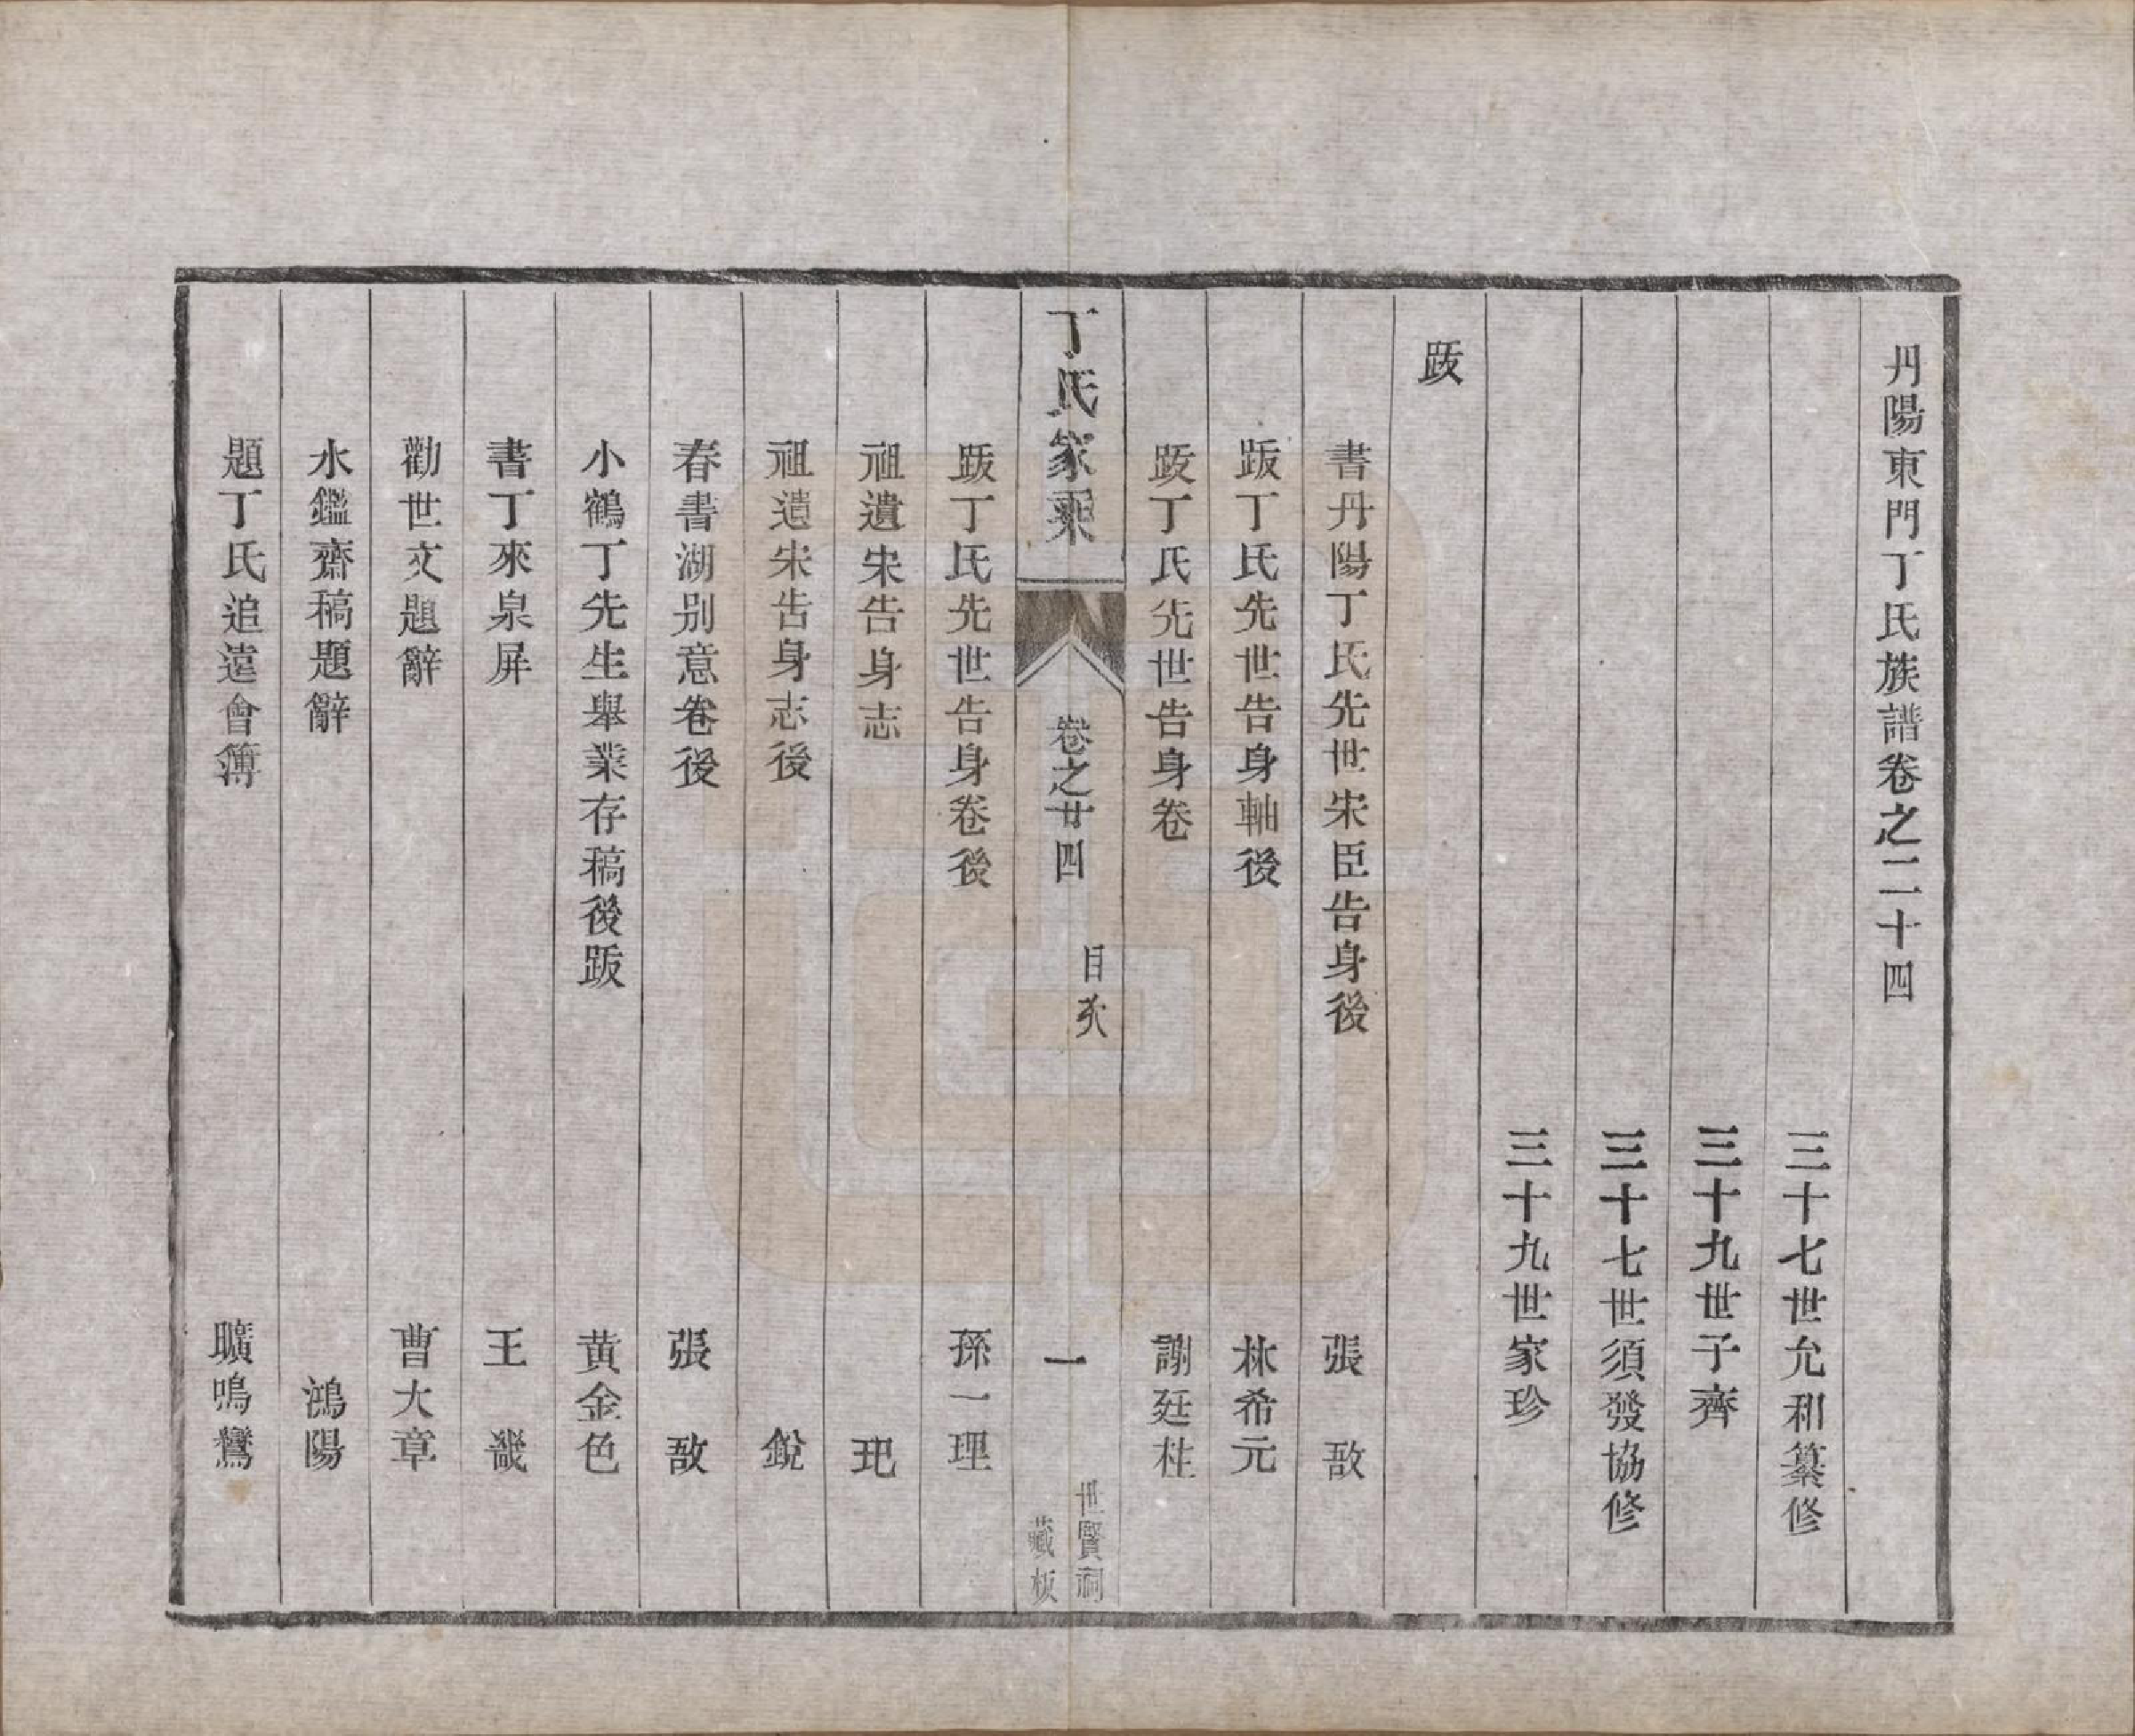 丹陽東門丁氏族譜卷之二十四
三十七世允和纂修
三十九世子齊
三十七世須發協修
三十九世家珍
跋
書丹陽丁氏先世宋臣告身後 張敔
跋丁氏先世告身軸後 林希元
跋丁氏先世告身卷 謝廷柱
丁氏家乘 卷之廿四 目次 一 世賢祠藏板
跋丁氏先世告身卷後 孫一理
祖遺宋告身志 玘
祖遺宋告身志後 銳
春書湖别意卷後 張敔
小鶴丁先生舉業存稿後跋 黄金色
書丁來泉屏 王畿
勸世文題辭 曹大章
水鑑齋稿題辭 鴻陽
題丁氏追遠會簿 曠鳴鸞